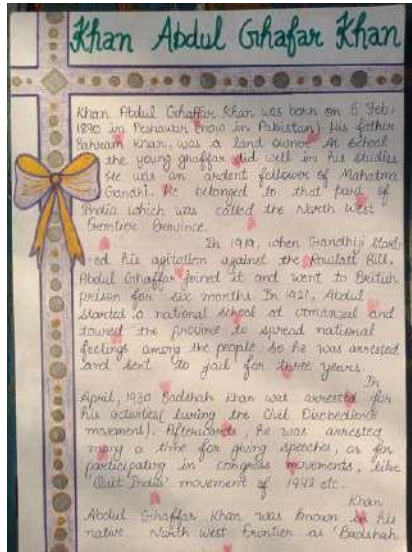 Khan Abdul Ghafar Khan
Khan Abdul Ghaffar Khan was born on 6 Feb,
1890 in Peshawar (now in Pakistan). His father
Bahram Khan, was a land owner. At school
the young ghaffar did well in his studies
He was an ardent follower of Mahatma
Gandhi. He belonged to that part of
India which was called the North West
Frontier Province.
In 1919, when Gandhiji start-
-ed his agitation against the Rowlatt Bill,
Abdul Ghaffar joined it and went to British
prison for six months. In 1921, Abdul
started a national school at Utmanzal and
toured the province to spread national
feelings among the people so he was arrested
and sent to jail for three years.
In
April, 1930 Badshah Khan was arrested for
his activities( during the Civil Disobedience
movement). Afterwards, he was arrested
many a time for giving speeches, or for
participating in congress movements, like
Quit India' movement of 1942 etc.
Khan
Abdul Ghaffar Khan was known in his
native North West Frontier as 'Badshah